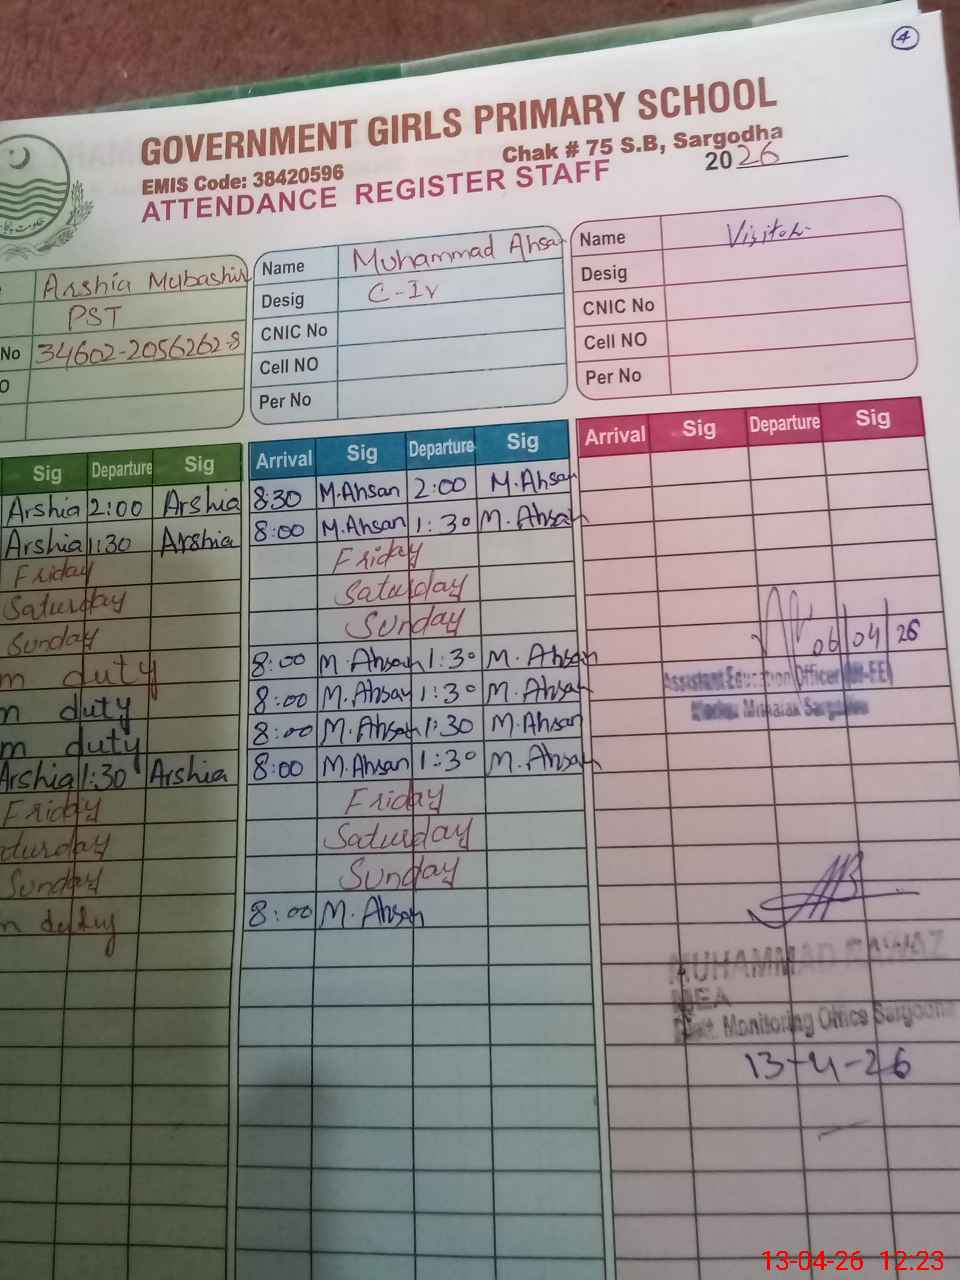 4
GOVERNMENT GIRLS PRIMARY SCHOOL
EMIS Code: 38420596 Chak # 75 S.B, Sargodha
ATTENDANCE REGISTER STAFF 2026
Arshia Mubashir
PST
No 34602-2056262-8
Name Muhammad Ahsan
Desig C-IV
CNIC No
Cell NO
Per No
Name Visitor
Desig
CNIC No
Cell NO
Per No
Sig Departure Sig Arrival Sig Departure Sig Arrival Sig Departure Sig
Arshia 2:00 Arshia 8:30 M.Ahsan 2:00 M.Ahsan
Arshia 1:30 Arshia 8:00 M.Ahsan 1:30 M.Ahsan
Friday Friday
Saturday Saturday
Sunday Sunday
m duty 8:00 M.Ahsan 1:30 M.Ahsan
06/04/26
n duty 8:00 M.Ahsan 1:30 M.Ahsan
Assistant Education Officer (M-EE)
m duty 8:00 M.Ahsan 1:30 M.Ahsan
Sargodha
Arshia 1:30 Arshia 8:00 M.Ahsan 1:30 M.Ahsan
Friday Friday
aturday Saturday
Sunday Sunday
n duty 8:00 M.Ahsan
MUHAMMAD NAWAZ
MEA
Distt. Monitoring Office Sargodha
13-4-26
13-04-26 12:23